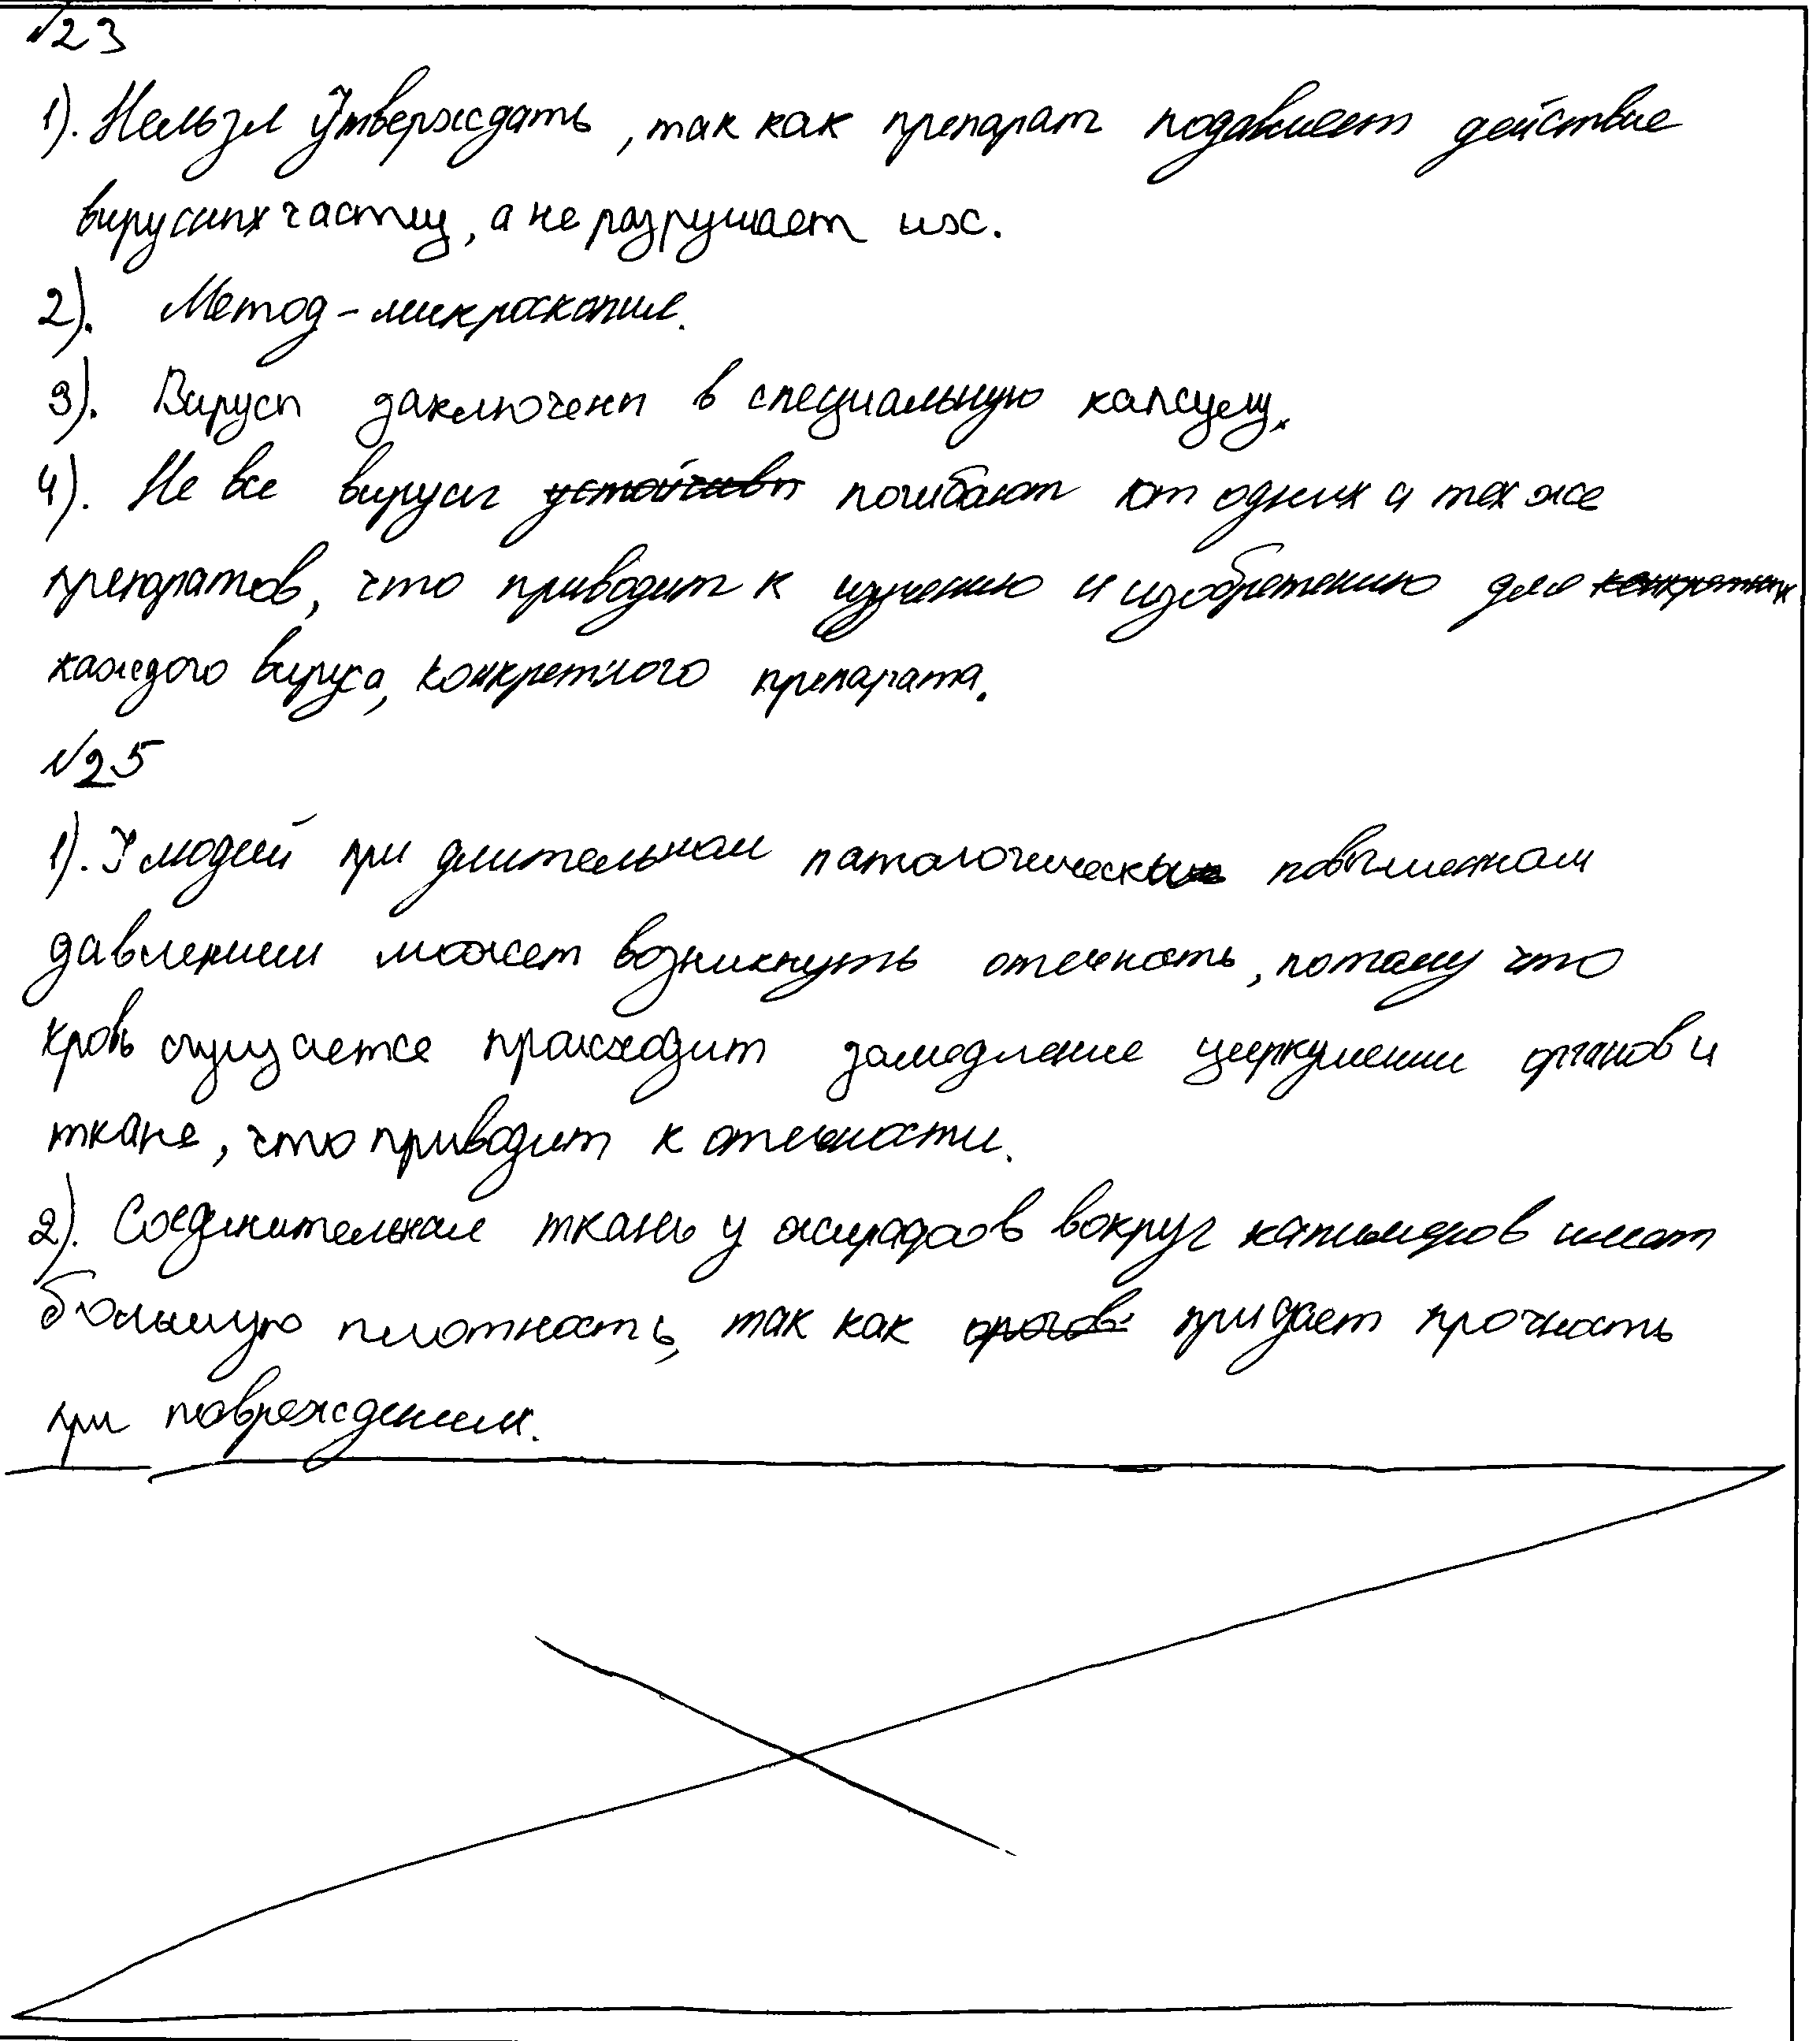 №23
1). Нельзя утверждать, так как препарат подавляет действие
вирусных частиц, а не разрушает их.
2). Метод - микроскопия.
3). Вирусы заключены в специальную капсулу.
4). Не все вирусы устойчивы погибают от одних и тех же
препаратов, что приводит к изучению и изобретению для конкретных
каждого вируса, конкретного препарата.
№25
1). У людей при длительном патологическом повышенном
давлении может возникнуть отечность, потому что
кровь сгущается происходит замедление циркуляции органов и
ткане, что приводит к отечности.
2). Соединительная ткань у жирафов вокруг капилляров имеет
большую плотность, так как придает прочность
при повреждениях.